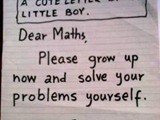 A CUTE LETTER
LITTLE BOY.
Dear Maths,
Please grow up
now and solve your
problems yourself.